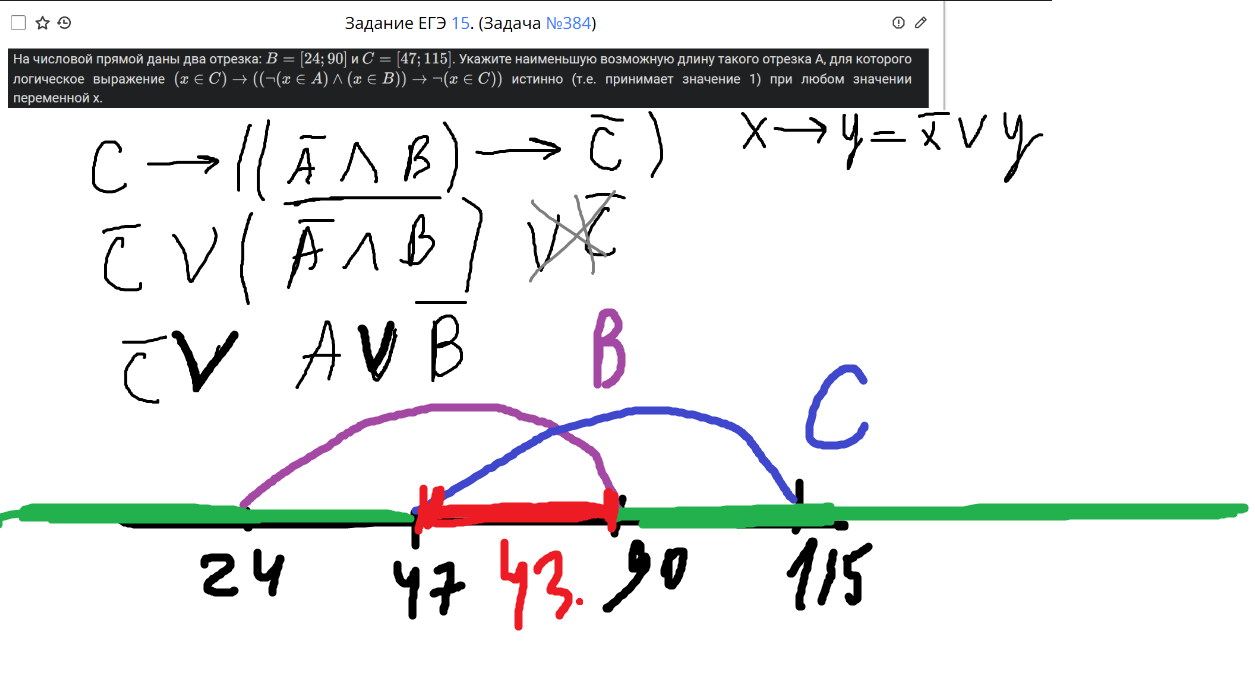 Задание ЕГЭ 15. (Задача №384)
На числовой прямой даны два отрезка: B = [24; 90] и C = [47; 115]. Укажите наименьшую возможную длину такого отрезка A, для которого
логическое выражение (x ∈ C) → ((¬(x ∈ A) ∧ (x ∈ B)) → ¬(x ∈ C)) истинно (т.е. принимает значение 1) при любом значении
переменной x.
x → y = x̅ ∨ y
C → ((A̅ ∧ B) → C̅)
C̅ ∨ (A̅ ∧ B) ∨ C̅
C̅ ∨ A ∨ B̅
B
C
24 47 43. 90 115